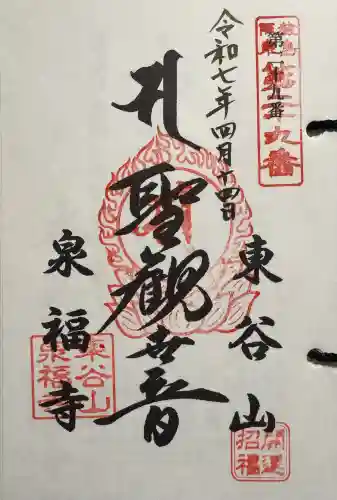 第二十九番
令和七年四月十四日
聖観世音
東谷山
泉福寺
東谷山
泉福寺
開運
招福